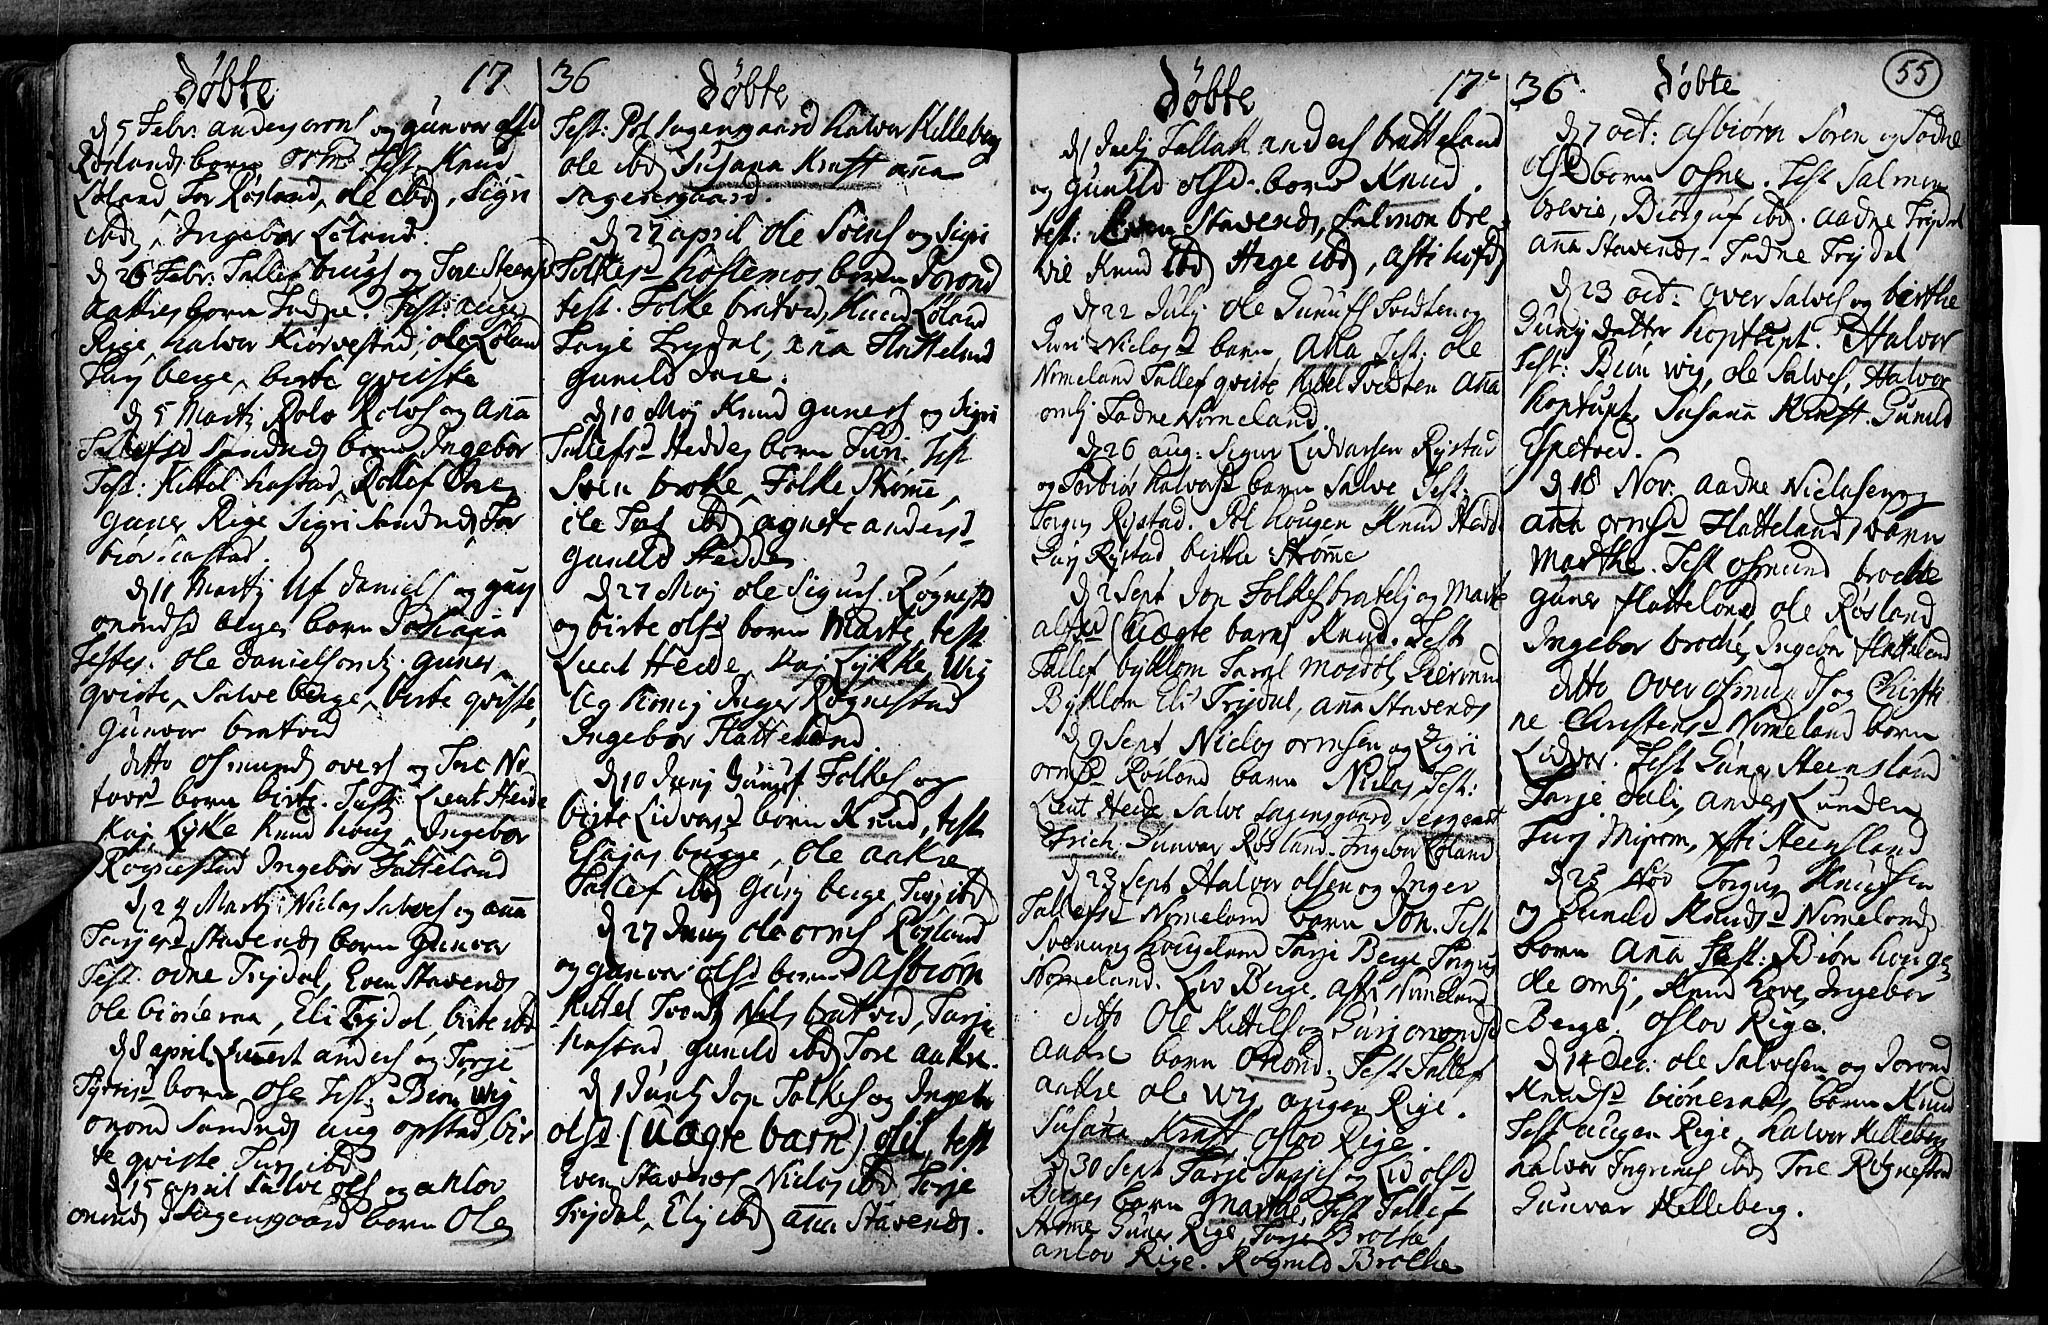 Døbte 17
d 5 Febr: anders orms og gunvor olsd
Røslands born orm Test. Knud
Løland Tor Røsland, ole ibd, Sigri
ibd, Ingebor Løland.
d 26 Febr: Tallef bugs og Tore Steensd
Aakres born Tadne. Test: auge
Rige halvor Kiørvestad, ole Løland
Turj berge, birte qviste
d 5 Martj Rolv Rolvs og Ana
Tallefsd Sandnes born Ingebor
Test: Kittel hastad, Rollef
guner Rige Sigri Sandnes Tor
biør hastad.
d 11 Martj Uf Daniels og gurj
onondsd berges born Johana
Testes. ole Danielsen guner
qviste, Salve berge, birte qviste,
Gunvor bratved
ditto osmund overs og Tore No
tovrd born birte. Test: Lieut Heide
Kaj Lykke Knud houg, Ingebor
Rognestad Ingebor Flatteland
d 24 Martj Niclas Salves og ana
Tarjersd Stavenes born Gunvor
Test: odne Trydal, Even Stavenes
ole biøneraa, Eli Trydal, birte ibd
d 8 april anders og Torje
born ose Test: Biøn wig
onond Sandnes aug opstad, bir
te qviste Turj ibd
d 15 april Salve ols og anlov
ononds Sagensgaard born Ole
36 Døbte
Test: Pol Sagensgaard halvor Kelleberg
ole ibd Susana Kraft ana
Sagensgaard.
d 27 april ole Soens og Sigri
Folkesd hoslemos born Jorond
test. Folke bratved, Knud Løland
Torje Trydal, ana Flatteland
Gunild
d 10 Maj Knud guners og Sigri
Tallefsd Heddes born Turi. Test
Soen broke, Folke Strøme,
ole ibd agnete andersd
Gunild Hedde
d 27 Maj ole Sigurs. Rognestd
og birte olsd born Marte, test
Lieut Heide, Kaj Lykke, Wig
og Inger Rognestad
Ingebor Flatteland
d 10 Junj Gunuf Folkes og
birte Lidvorsd born Knud, test
Esajas bugge, ole aakre
Tallef ibd gurj berge, Turj ibd
d 27 Junj ole orms Røsland
og gunvor olsd born Asbiørn
Kittel Nils bratved, Tarje
hastad, gunild ibd Tore aakre.
d 1 Julj Jon Folkes og Ingebor
olsd (Uægte barn) osil, test
Even Stavenes Niclas ibd Torje
Trydal, Elj ibd ana Stavenes.
Døbte 17
d 1 Julj Tallak anders bratteland
og gunild olsd. born Knud.
test: Even Stavenes, Salmon bre
vie Knud ibd Hege ibd, asti
d 22 Julj ole Gunufs Tvedten og
Guri Niclasd born Ana Test: ole
Nomeland Tallef qviste Kittel Tvedten Ana
omlj Tadne Nomeland.
d 26 aug: Sigur Lidvorsen Rystad
og Torbiør halvorsd born Salve Test:
Torgus Rystad. Pol hougen Knud Hedde
Gurj Rystad, birthe Strømme
d 2 Sept Jon Folkes bratelj og Marte
alfsd (Uægte barn) Knud. Test
Tallef byklom Taral mosdøl,
Byklom Eli Trydal, ana Stavenes
d 9 Sept Niclas ormsen og Sigri
ormsd Røsland born Niclas Test:
Lieut Heide Salve Sagensgaard, Sergeant
Frich. Gunvor Røsland. Ingebor Løland
d 23 Sept Halvor olsen og Inger
Tallefsd Nomeland born Jon. Test
Svenung hougeland Tarje Berge Torgus
Nomeland. Liv Berge. asti Nomeland
ditto Ole Kittels og Gurj ononsd
aakre born Onond. Test Tallef
aakre ole wig augen Rige.
Susana Kraft oslov Rige.
d 30 Sept Tarje Tarjes og Lid olsd
Berges born Marthe, Test Tallef
Strøme Guner Rige, Torje Broche
anlov Rige. Rognild Broche
36 Døbte 55
d 7 oct: Asbiørn Søren og Tadne
olsd born osne. Test Salmon
brevie, Biurguf ibd. Aadne Trydal
ana Stavenes. Tadne Trydal
d 23 oct: over Salves og birthe
Gunj datter hoptupt. Halvor
Test: Biøn wig, ole Salves, Halvor
hoptupt, Susana Kraft. Gunild
Espetved.
d 18 Nov. aadne Niclasen og
ana ormsd Flatteland, born
Marthe. Test osmund broche
guner flatteland ole Røsland
Ingebor broche, Ingebor flatteland
ditto over osmunds og Christi
ne Christensd Nomeland born
Lidvor. Test Guner Steensland
Tarje dalj, anders Lunden
Turj asti Steensland
d 25 Nov Torgus Knudsen
og Gunild Knudsd Nomelands
born Ana Test: Biøn houge,
ole omlj, Knud hove, Ingebor
Berge. oslov Rige.
d 14 Dec: ole Salvesen og Jorond
Knudsd biøneraas born Knud
Test augen Rige, halvor Kelleberg
halvor Ingrenes ibd Tore Rognestad
Gunvor Kelleberg.